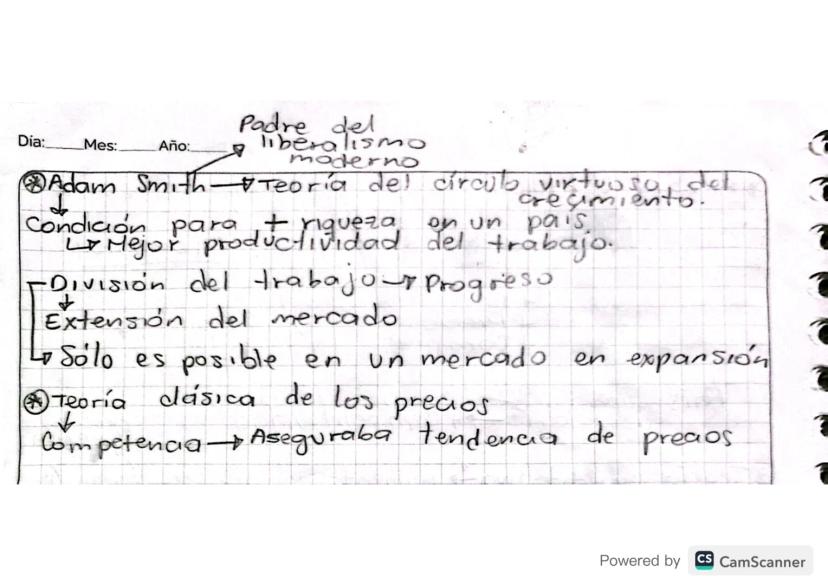 Padre del
Día:____ Mes:____ Año:____ liberalismo
moderno
⊛ Adam Smith → Teoría del círculo virtuoso del
crecimiento.
↓
Condición para + riqueza en un país.
↳ Mejor productividad del trabajo.
División del trabajo → Progreso
↓
Extensión del mercado
↳ Sólo es posible en un mercado en expansión
⊛ Teoría clásica de los precios
↓
Competencia → Aseguraba tendencia de precios
Powered by CS CamScanner